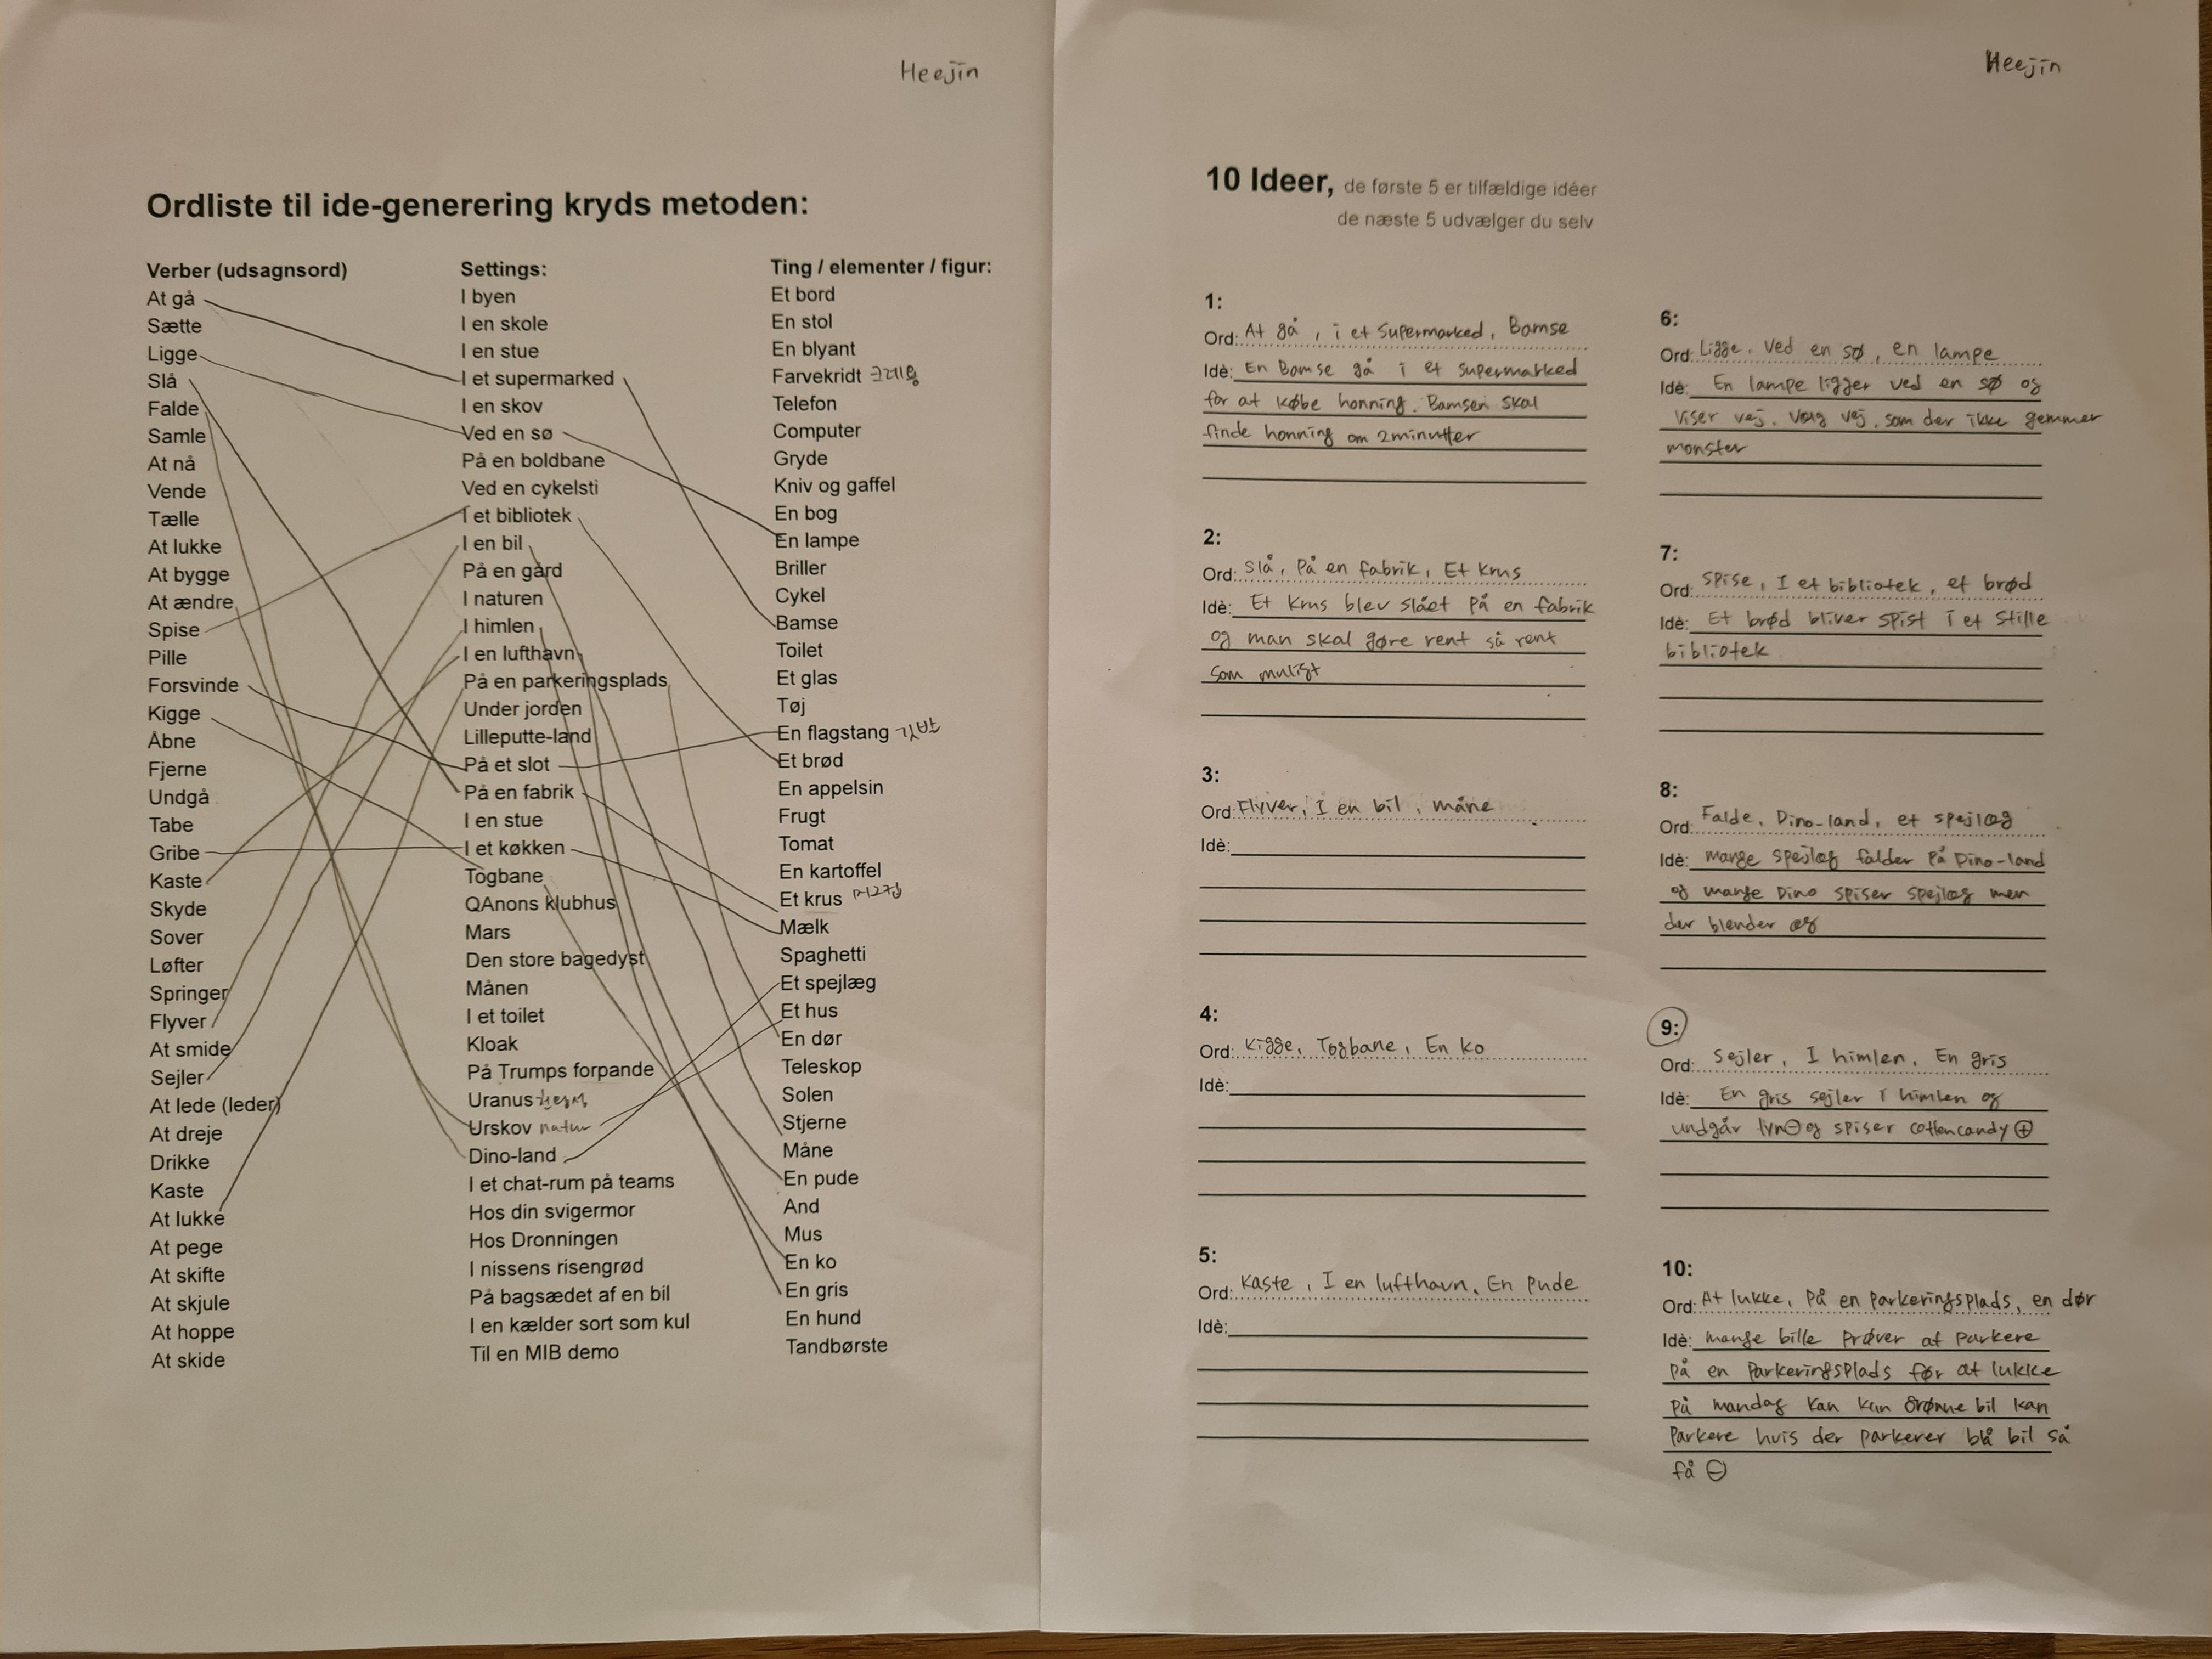 Heejin
Ordliste til ide-generering kryds metoden:
Verber (udsagnsord)
At gå
Sætte
Ligge
Slå
Falde
Samle
At nå
Vende
Tælle
At lukke
At bygge
At ændre
Spise
Pille
Forsvinde
Kigge
Åbne
Fjerne
Undgå
Tabe
Gribe
Kaste
Skyde
Sover
Løfter
Springer
Flyver
At smide
Sejler
At lede (leder)
At dreje
Drikke
Kaste
At lukke
At pege
At skifte
At skjule
At hoppe
At skide
Settings:
I byen
I en skole
I en stue
I et supermarked
I en skov
Ved en sø
På en boldbane
Ved en cykelsti
I et bibliotek
I en bil
På en gård
I naturen
I himlen
I en lufthavn
På en parkeringsplads
Under jorden
Lilleputte-land
På et slot
På en fabrik
I en stue
I et køkken
Togbane
QAnons klubhus
Mars
Den store bagedyst
Månen
I et toilet
Kloak
På Trumps forpande
Uranus 천왕성
Urskov natur
Dino-land
I et chat-rum på teams
Hos din svigermor
Hos Dronningen
I nissens risengrød
På bagsædet af en bil
I en kælder sort som kul
Til en MIB demo
Ting / elementer / figur:
Et bord
En stol
En blyant
Farvekridt 크레용
Telefon
Computer
Gryde
Kniv og gaffel
En bog
En lampe
Briller
Cykel
Bamse
Toilet
Et glas
Tøj
En flagstang 깃발
Et brød
En appelsin
Frugt
Tomat
En kartoffel
Et krus 머그컵
Mælk
Spaghetti
Et spejlæg
Et hus
En dør
Teleskop
Solen
Stjerne
Måne
En pude
And
Mus
En ko
En gris
En hund
Tandbørste
Heejin
10 Ideer, de første 5 er tilfældige idéer
de næste 5 udvælger du selv
1:
Ord: At gå , i et supermarked , Bamse
Idè: En Bamse gå i et supermarked
for at købe honning. Bamsen skal
finde honning om 2minutter
2:
Ord: Slå, På en fabrik, Et krus
Idè: Et krus blev slået på en fabrik
og man skal gøre rent så rent
som muligt
3:
Ord: Flyver, I en bil, måne
Idè:
4:
Ord: Kigge, Togbane, En ko
Idè:
5:
Ord: Kaste, I en lufthavn, En pude
Idè:
6:
Ord: Ligge, Ved en sø, en lampe
Idè: En lampe ligger ved en sø og
viser vej. Vælg vej, som der ikke gemmer
monster
7:
Ord: Spise, I et bibliotek, et brød
Idè: Et brød bliver spist i et stille
bibliotek
8:
Ord: Falde, Dino-land, et spejlæg
Idè: mange spejlæg falder på Dino-land
og mange Dino spiser spejlæg men
der blender æg
9:
Ord: Sejler, I himlen, En gris
Idè: En gris sejler i himlen og
undgår lyn⊖og spiser cottencandy⊕
10:
Ord: At lukke, På en parkeringsplads, en dør
Idè: mange bille prøver at parkere
på en parkeringsplads før at lukke
på mandag kan kun grønne bil kan
parkere hvis der parkerer blå bil så
få ⊖